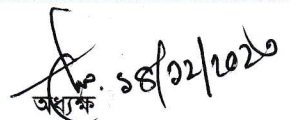 ১৪/১২/২০২৩
অধ্যক্ষ